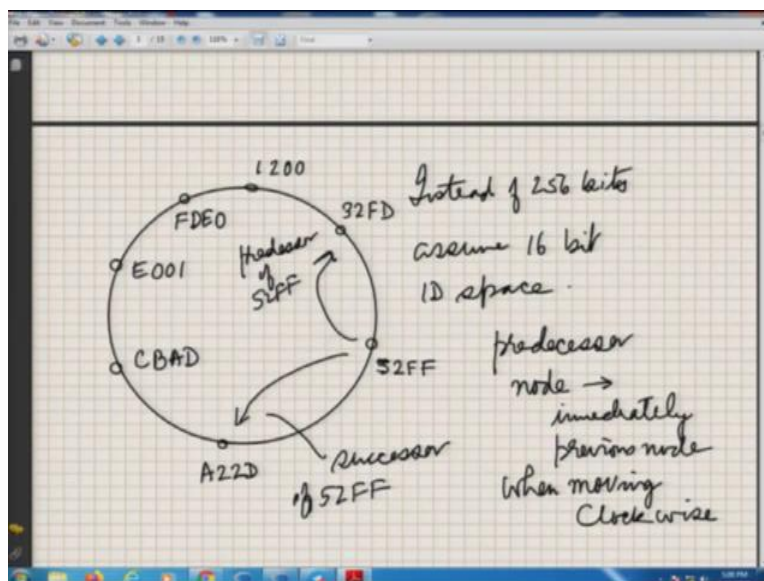 File Edit View Document Tools Window Help
1200
FDE0
32FD
E001
predessor
of
52FF
CBAD
52FF
A22D
successor
of 52FF
Instead of 256 bits
assume 16 bit
ID space.
predecessor
node →
immediately
previous node
when moving
Clockwise